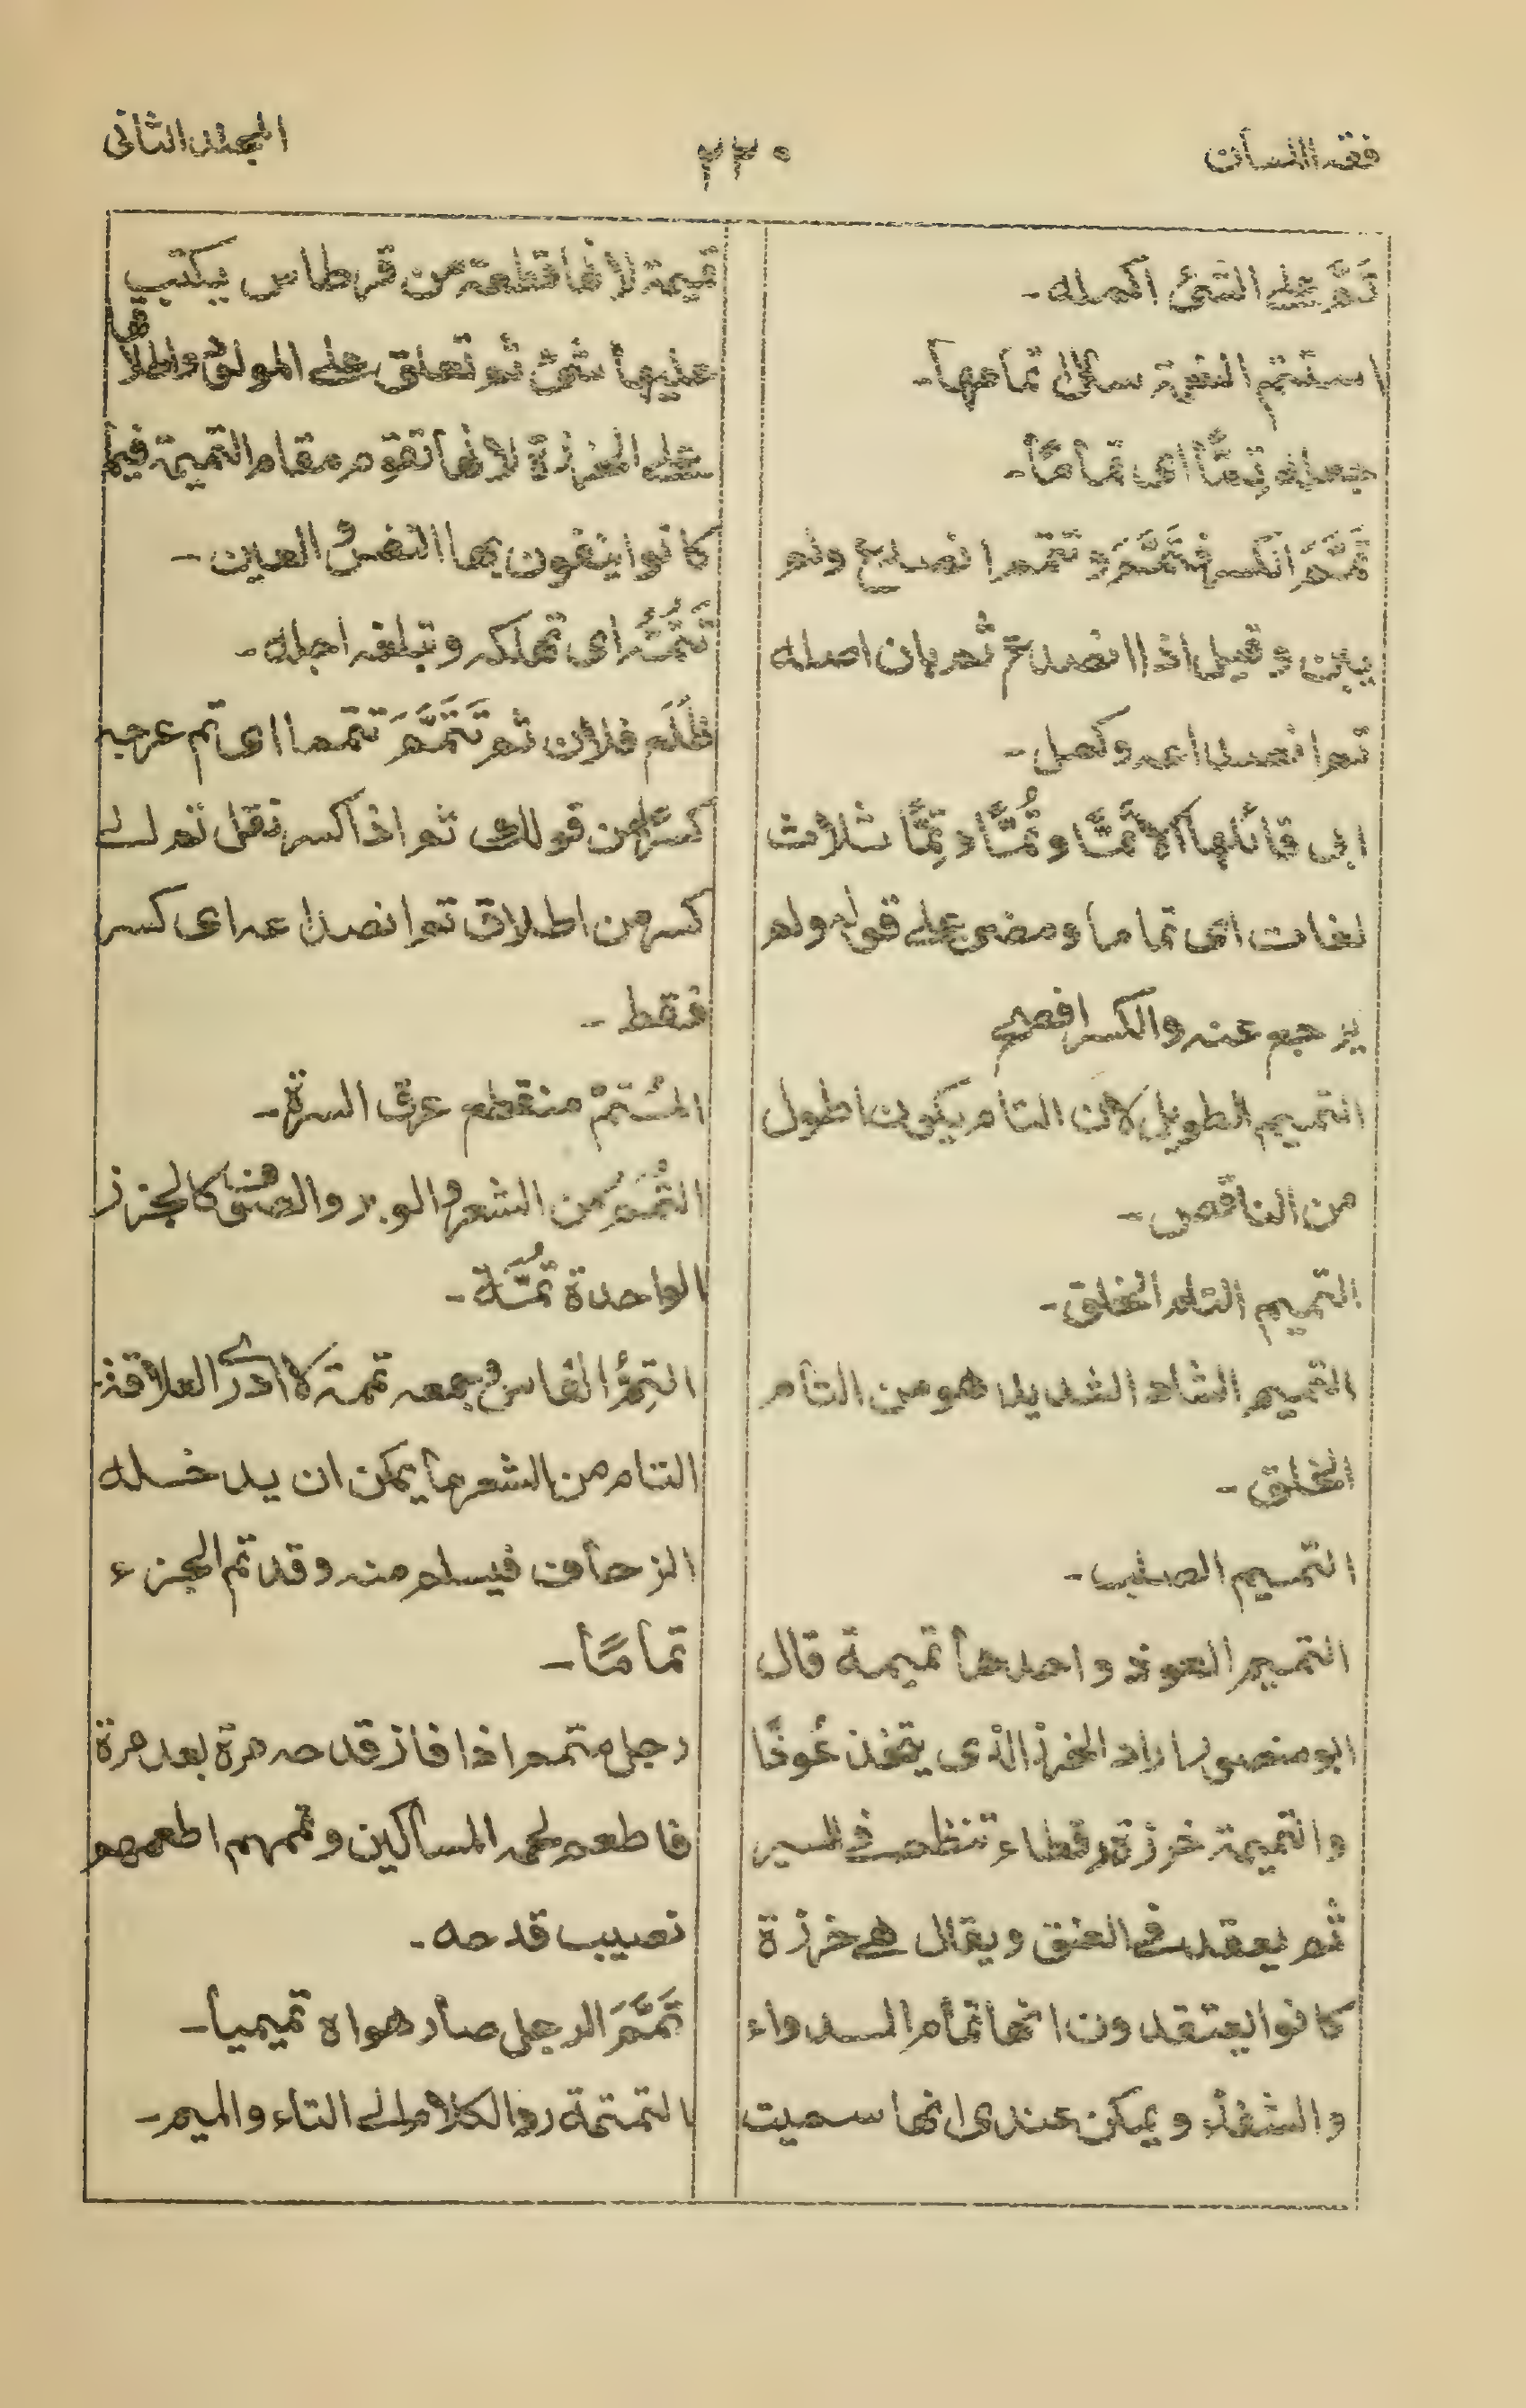 فقه اللسان
٢٢٠
المجلد الثانی
تَمَّ علی الشئ اکمله -
استتم النعمة سال تمامها -
جعله تِمًّا ای تماما -
تَمَّمَ الکسر فتَمَّمَ و تتمم انصدع ولم
یبن وقیل اذا انصدع ثم بان اصله
تمم انصداعه وکمل -
ابی قائلها الا تَمًّا وتُمًّا وتِمًّا ثلاث
لغات ای تماما ومضی علی قوله ولم
یرجع عنه والکسر افصح
التمیم الطویل لان التام یکون اطول
من الناقص -
التمیم التام الخلق -
التمیم الشاد الشدید هو من التام
الخلق -
التمیم الصلب -
التمیم العوذ واحدها تمیمة قال
ابو منصور اراد الخرز الذی یتخذ عُوَذًا
والتمیمة خرزة رقطاء تنظم فی السیر
ثم یعقد فی العنق ویقال هی خرزة
کانوا یعتقدون انها تمام الدواء
والشفاء ویمکن عندی انها سمیت
تمیمة لانها قطعة من قرطاس یکتب
علیها شئ ثم تعلق علی المولود واطلاقها
علی الخرزة لانها تقوم مقام التمیمة فیما
کانوا ینفون بها النفس والعین -
تُتَمِّمُه ای تهلکه وتبلغه اجله -
ظَلَع فلان ثم تَتَمَّمَ تتمما ای تم عرجه
کسرًا من قولک تم اذا کسر نقل تم الی
کسر من اطلاق تم انصداعه ای کسر
فقط -
المُستَتِمّ منقطع عرق السرة -
التُّمَم من الشعر والوبر والصوف کالجزز
الواحدة تُمَّة -
التِمُّ الفاس وجمعه تممة لا ادری العلاقة
التام من الشعر ما یمکن ان یدخله
الزحاف فیسلم منه وقد تم الجزء
تمامًا -
رجل متمم اذا فاز قدحه مرة بعد مرة
فاطعم لحمه المساکین وتممهم اطعمهم
نصیب قدحه -
تَمَّمَ الرجل صار هواه تمیمیا -
التمتمة رد الکلام الی التاء والمیم -